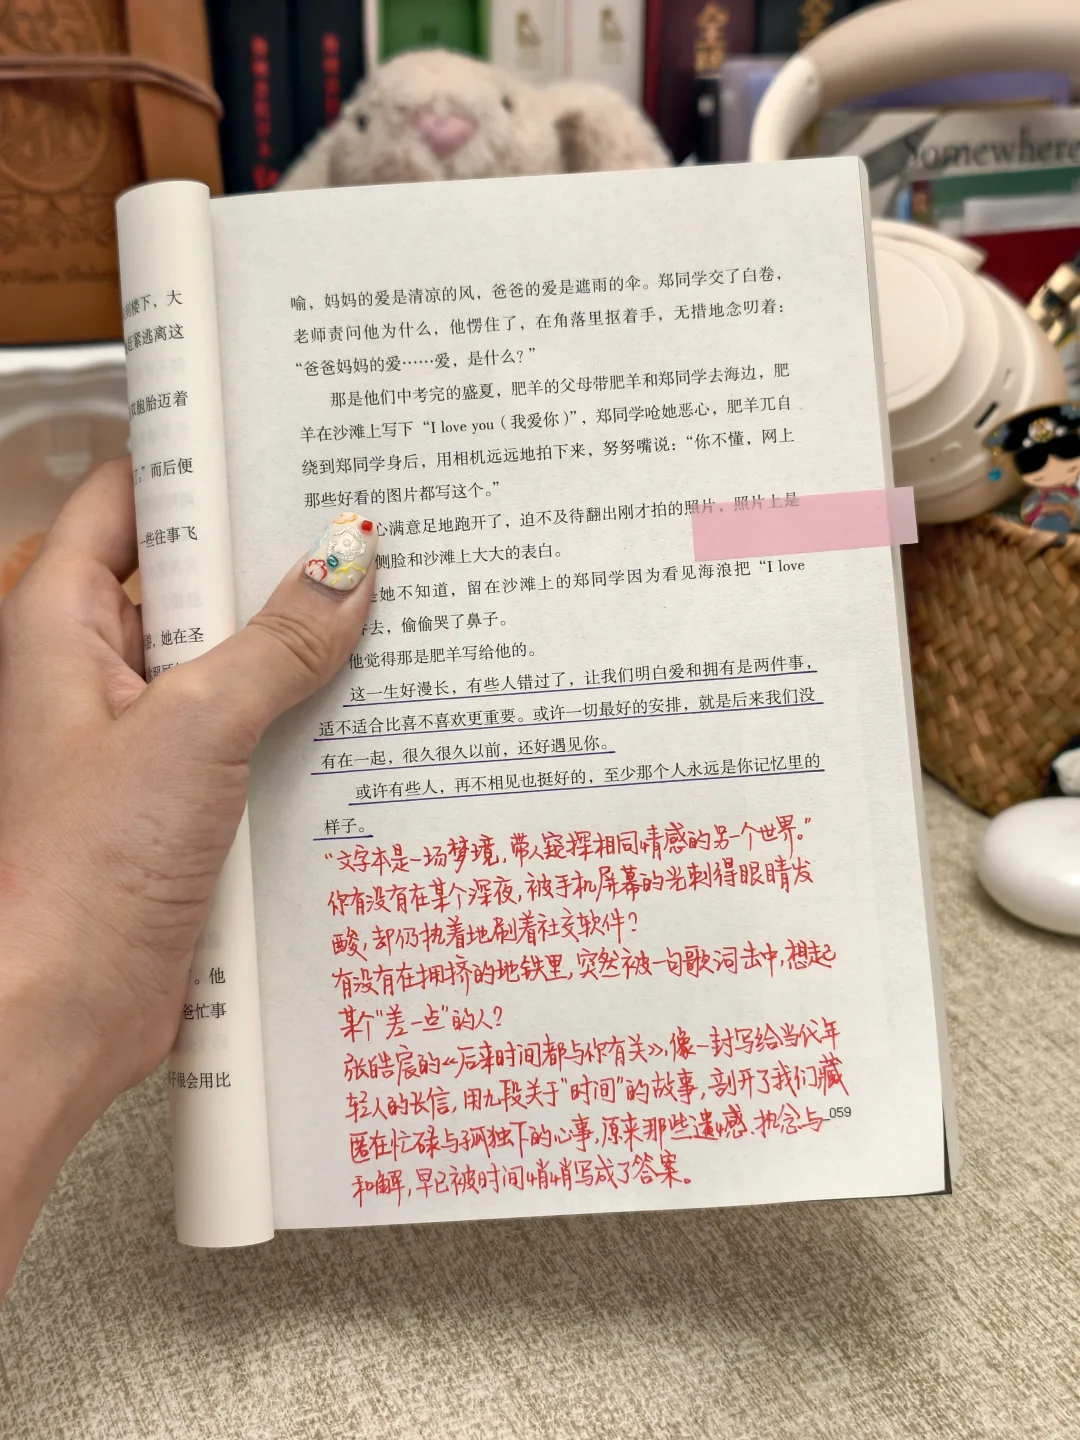 Somewhere
到楼下，大
赶紧逃离这
双胞胎迈着
了。”而后便
一些往事飞
，她在圣
。他
爸忙事
好很会用比
喻，妈妈的爱是清凉的风，爸爸的爱是遮雨的伞。郑同学交了白卷，
老师责问他为什么，他愣住了，在角落里抠着手，无措地念叨着：
“爸爸妈妈的爱……爱，是什么？”
那是他们中考完的盛夏，肥羊的父母带肥羊和郑同学去海边，肥
羊在沙滩上写下“I love you（我爱你）”，郑同学呛她恶心，肥羊兀自
绕到郑同学身后，用相机远远地拍下来，努努嘴说：“你不懂，网上
那些好看的图片都写这个。”
心满意足地跑开了，迫不及待翻出刚才拍的照片，照片上是
侧脸和沙滩上大大的表白。
是她不知道，留在沙滩上的郑同学因为看见海浪把“I love
去，偷偷哭了鼻子。
他觉得那是肥羊写给他的。
这一生好漫长，有些人错过了，让我们明白爱和拥有是两件事，
适不适合比喜不喜欢更重要。或许一切最好的安排，就是后来我们没
有在一起，很久很久以前，还好遇见你。
或许有些人，再不相见也挺好的，至少那个人永远是你记忆里的
样子。
“文字本是一场梦境，带人窥探相同情感的另一个世界。”
你有没有在某个深夜，被手机屏幕的光刺得眼睛发
酸，却仍执着地刷着社交软件？
有没有在拥挤的地铁里，突然被一句歌词击中，想起
某个“差一点”的人？
张皓宸的《后来时间都与你有关》，像一封写给当代年
轻人的长信，用九段关于“时间”的故事，剖开了我们藏
匿在忙碌与孤独下的心事，原来那些遗憾、执念与
和解，早已被时间悄悄写成了答案。
059